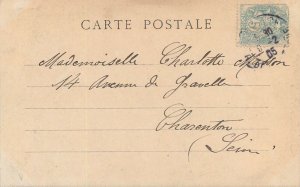 CARTE POSTALE
Mademoiselle Charlotte
14 Avenue de Gravelle
Charenton
(Seine)